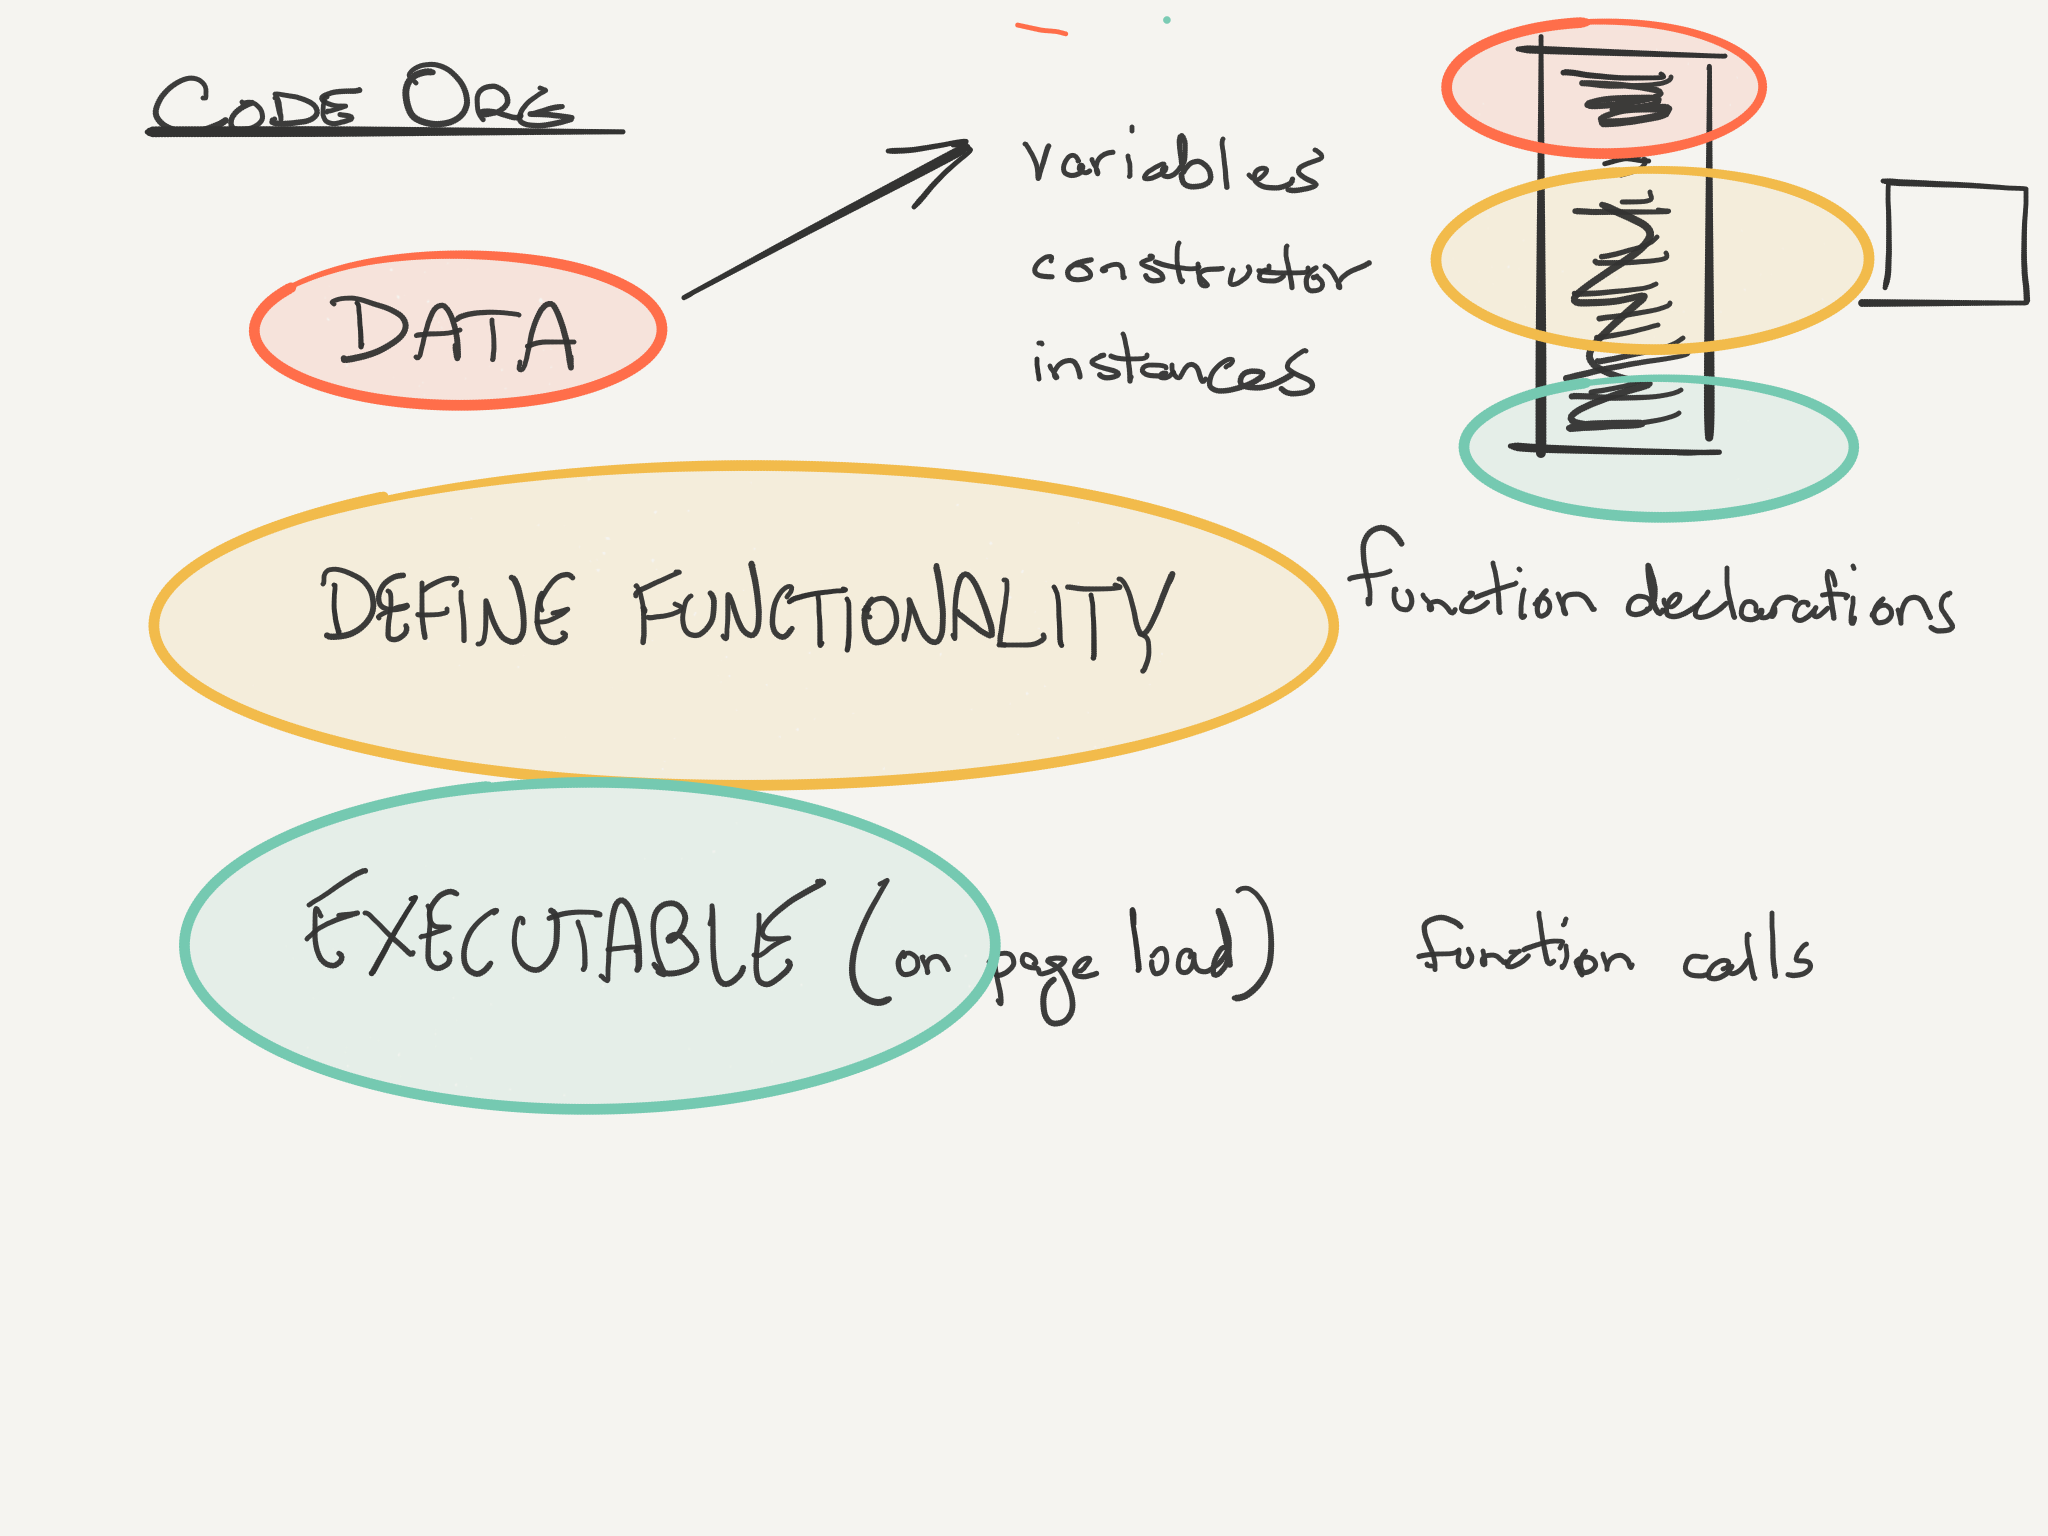 CODE ORG
DATA
variables
constructor
instances
DEFINE FUNCTIONALITY
function declarations
EXECUTABLE (on page load)
function calls